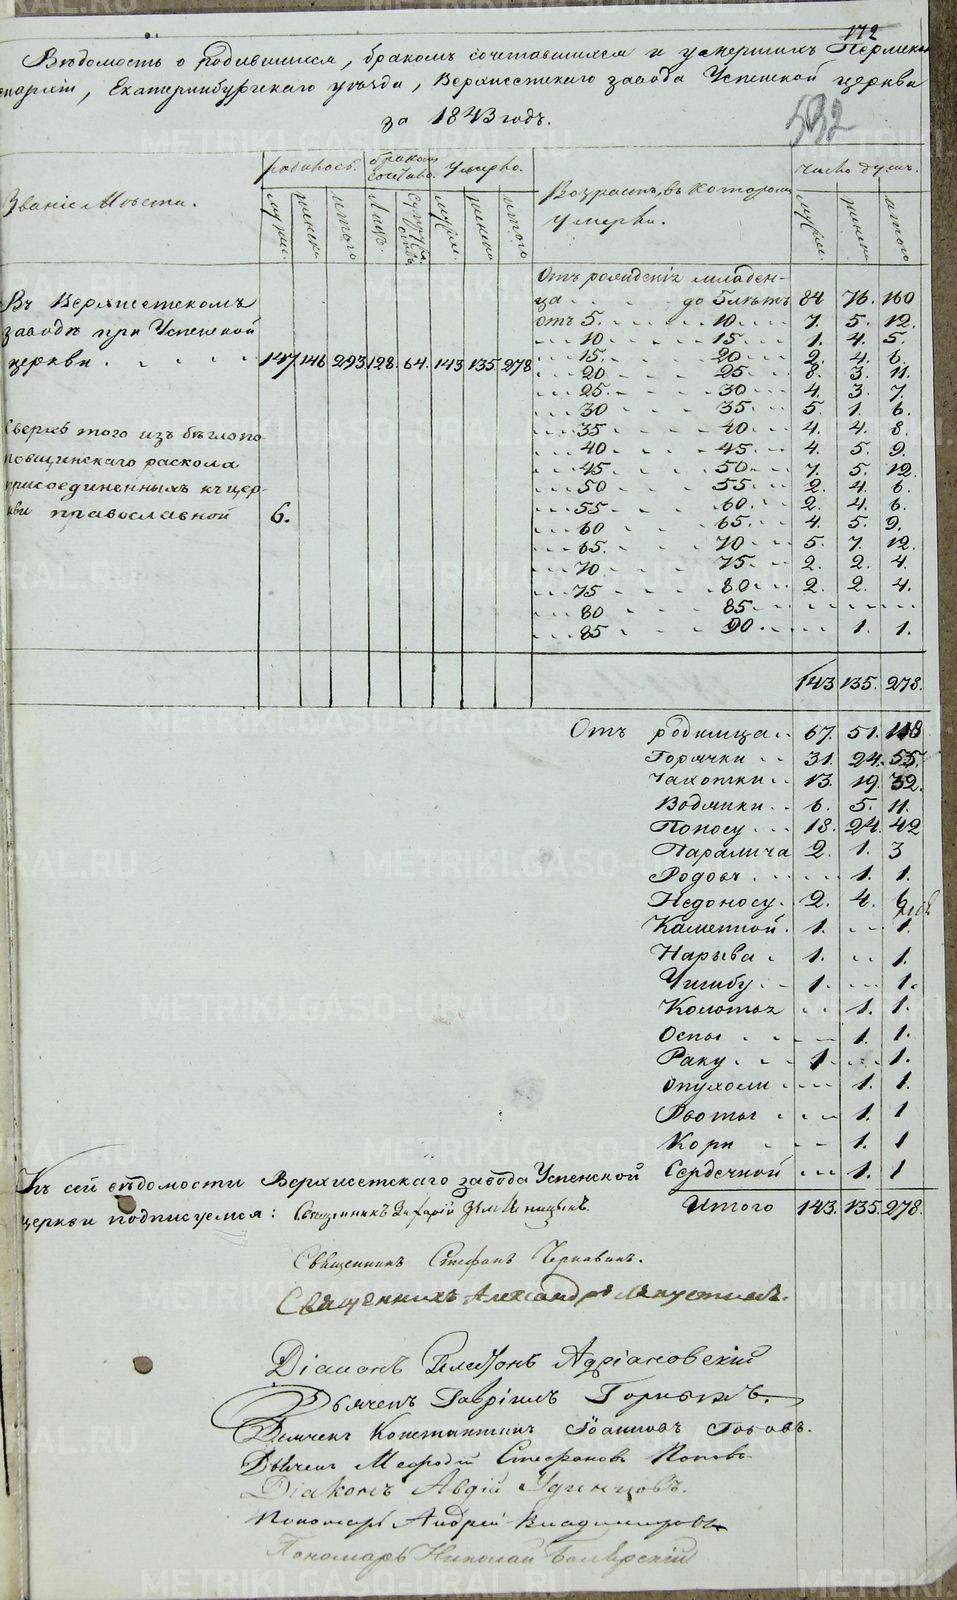 172
Вѣдомость о родившихся, бракомъ сочетавшихся и умершихъ Пермской
епархіи, Екатеринбургскаго уѣзда, Верхисетскаго завода Успенской церкви
за 1843 годъ.
532
Званіе Мѣста.
родилось.
бракомъ сочетано.
умерло.
Возрастъ, въ котором умерли.
число душъ.
мужес. женска итого Лицъ. Супружествъ мужес. женска итого
мужес. женска итого
Въ Верхисетскомъ
заводѣ при Успенской
церкви 147 146 293 128. 64. 143 135 278
Сверхъ того изъ бѣглопо-
повщинскаго раскола
присоединенныхъ къ цер-
кви православной 6.
Отъ рожденія младен-
ца до 5 лѣтъ 84 76. 160
отъ 5. 10. 7. 5. 12.
10 15. 1. 4. 5.
15. 20 2. 4. 6.
20 25 8. 3. 11.
25. 30 4. 3. 7.
30 35. 5. 1. 6.
35 40 4. 4. 8.
40 45. 4. 5. 9.
45. 50 7. 5. 12.
50 55. 2. 4. 6.
55 60. 2. 4. 6.
60 65. 4. 5. 9.
65. 70 5. 7. 12.
70 75. 2. 2. 4.
75 80. 2. 2. 4.
80 85.
85 90. 1. 1.
143 135. 278.
Отъ родимца 67. 51. 118
Горячки 31. 24. 55.
Чахотки 13. 19. 32.
Водянки 6. 5. 11.
Поносу 18. 24. 42
Паралича 2. 1. 3
Родовъ 1. 1.
Недоносу. 2. 4. 6
Каменной 1. 1.
Нарыва 1. 1.
Ушибу 1. 1.
Колотья 1. 1.
Оспы 1. 1.
Раку 1 1.
Опухоли 1. 1.
Рвоты 1. 1
Кори 1. 1
Сердечной 1. 1
Итого 143. 135 278.
Къ сей вѣдомости Верхисетскаго завода Успенской
церкви подписуемся: Священникъ Захарій
Священникъ Стефанъ Чернавинъ.
Священникъ Александръ
Діаконъ Адріановскій
Дьячекъ Гавріилъ Горныхъ.
Дьячекъ Константинъ Іоанновъ Поповъ.
Дьячекъ Мефодій Стефановъ Поповъ
Діаконъ Авдій Удинцовъ.
Пономарь Андрей Владимировъ
Пономарь Николай
METRIKI.GASO-URAL.RU